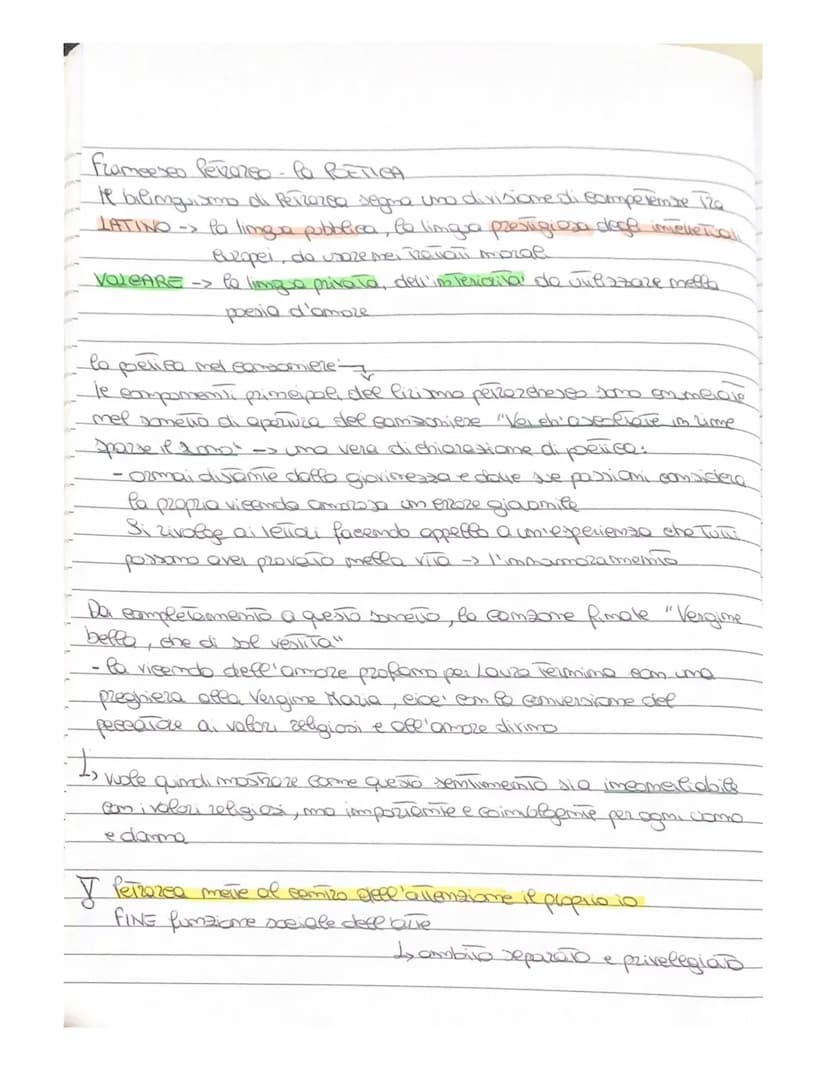 Francesco Petrarca - la POETICA
Il bilinguismo di Petrarca segna una divisione di competenze tra
LATINO -> la lingua pubblica, la lingua prestigiosa degli intellettuali
europei, da usare nei trattati morali
VOLGARE -> la lingua privata, dell'interiorità da utilizzare nella
poesia d'amore
la poetica nel canzoniere
le componenti principali del lirismo petrarchesco sono enunciate
nel sonetto di apertura del canzoniere "Voi ch'ascoltate in rime
sparse il suono" -> una vera dichiarazione di poetica:
- ormai distante dalla giovinezza e dalle sue passioni considera
la propria vicenda amorosa un errore giovanile
Si rivolge ai lettori facendo appello a un'esperienza che tutti
possono aver provato nella vita -> l'innamoramento
Da completamento a questo sonetto, la canzone finale "Vergine
bella, che di sol vestita"
- la vicenda dell'amore profano per Laura termina con una
preghiera alla Vergine Maria, cioè con la conversione del
peccatore ai valori religiosi e all'amore divino
↳ vuole quindi mostrare come questo sentimento sia inconciliabile
con i valori religiosi, ma importante e coinvolgente per ogni uomo
e donna
Petrarca mette al centro dell'attenzione il proprio io
FINE funzione sociale dell'arte
↳ ambito separato e privelegiato